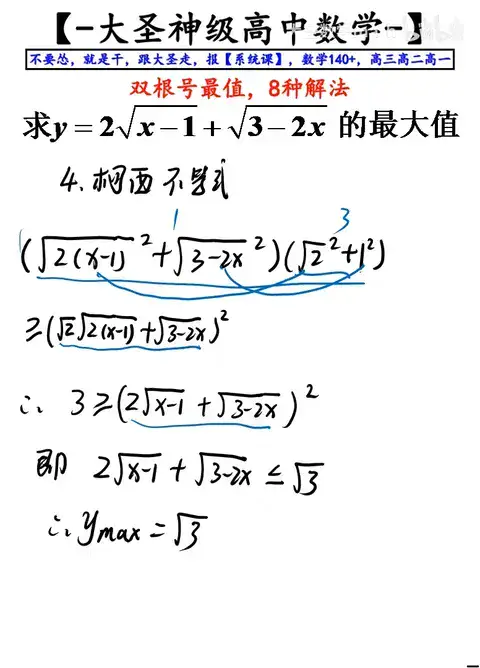 【-大圣神级高中数学-】
不要怂，就是干，跟大圣走，报【系统课】，数学140+，高三高二高一
双根号最值，8种解法
求y=2√(x-1)+√(3-2x) 的最大值
4. 柯西不等式
1 3
(√(2(x-1))²+√(3-2x)²)(√2²+1²)
≥(√2√(2(x-1))+√(3-2x))²
∴ 3≥(2√(x-1)+√(3-2x))²
即 2√(x-1)+√(3-2x)≤√3
∴ymax=√3